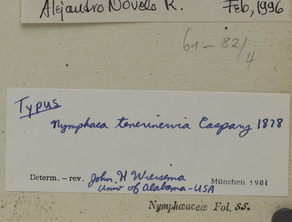 Alejandro Novelo R. Feb, 1996
61-82/4
Typus
Nymphaea tenerinervia Caspary 1878
Determ. - rev. John H Wiersema München 1981
Univ of Alabama-USA
Nymphæaceæ Fol. 55.